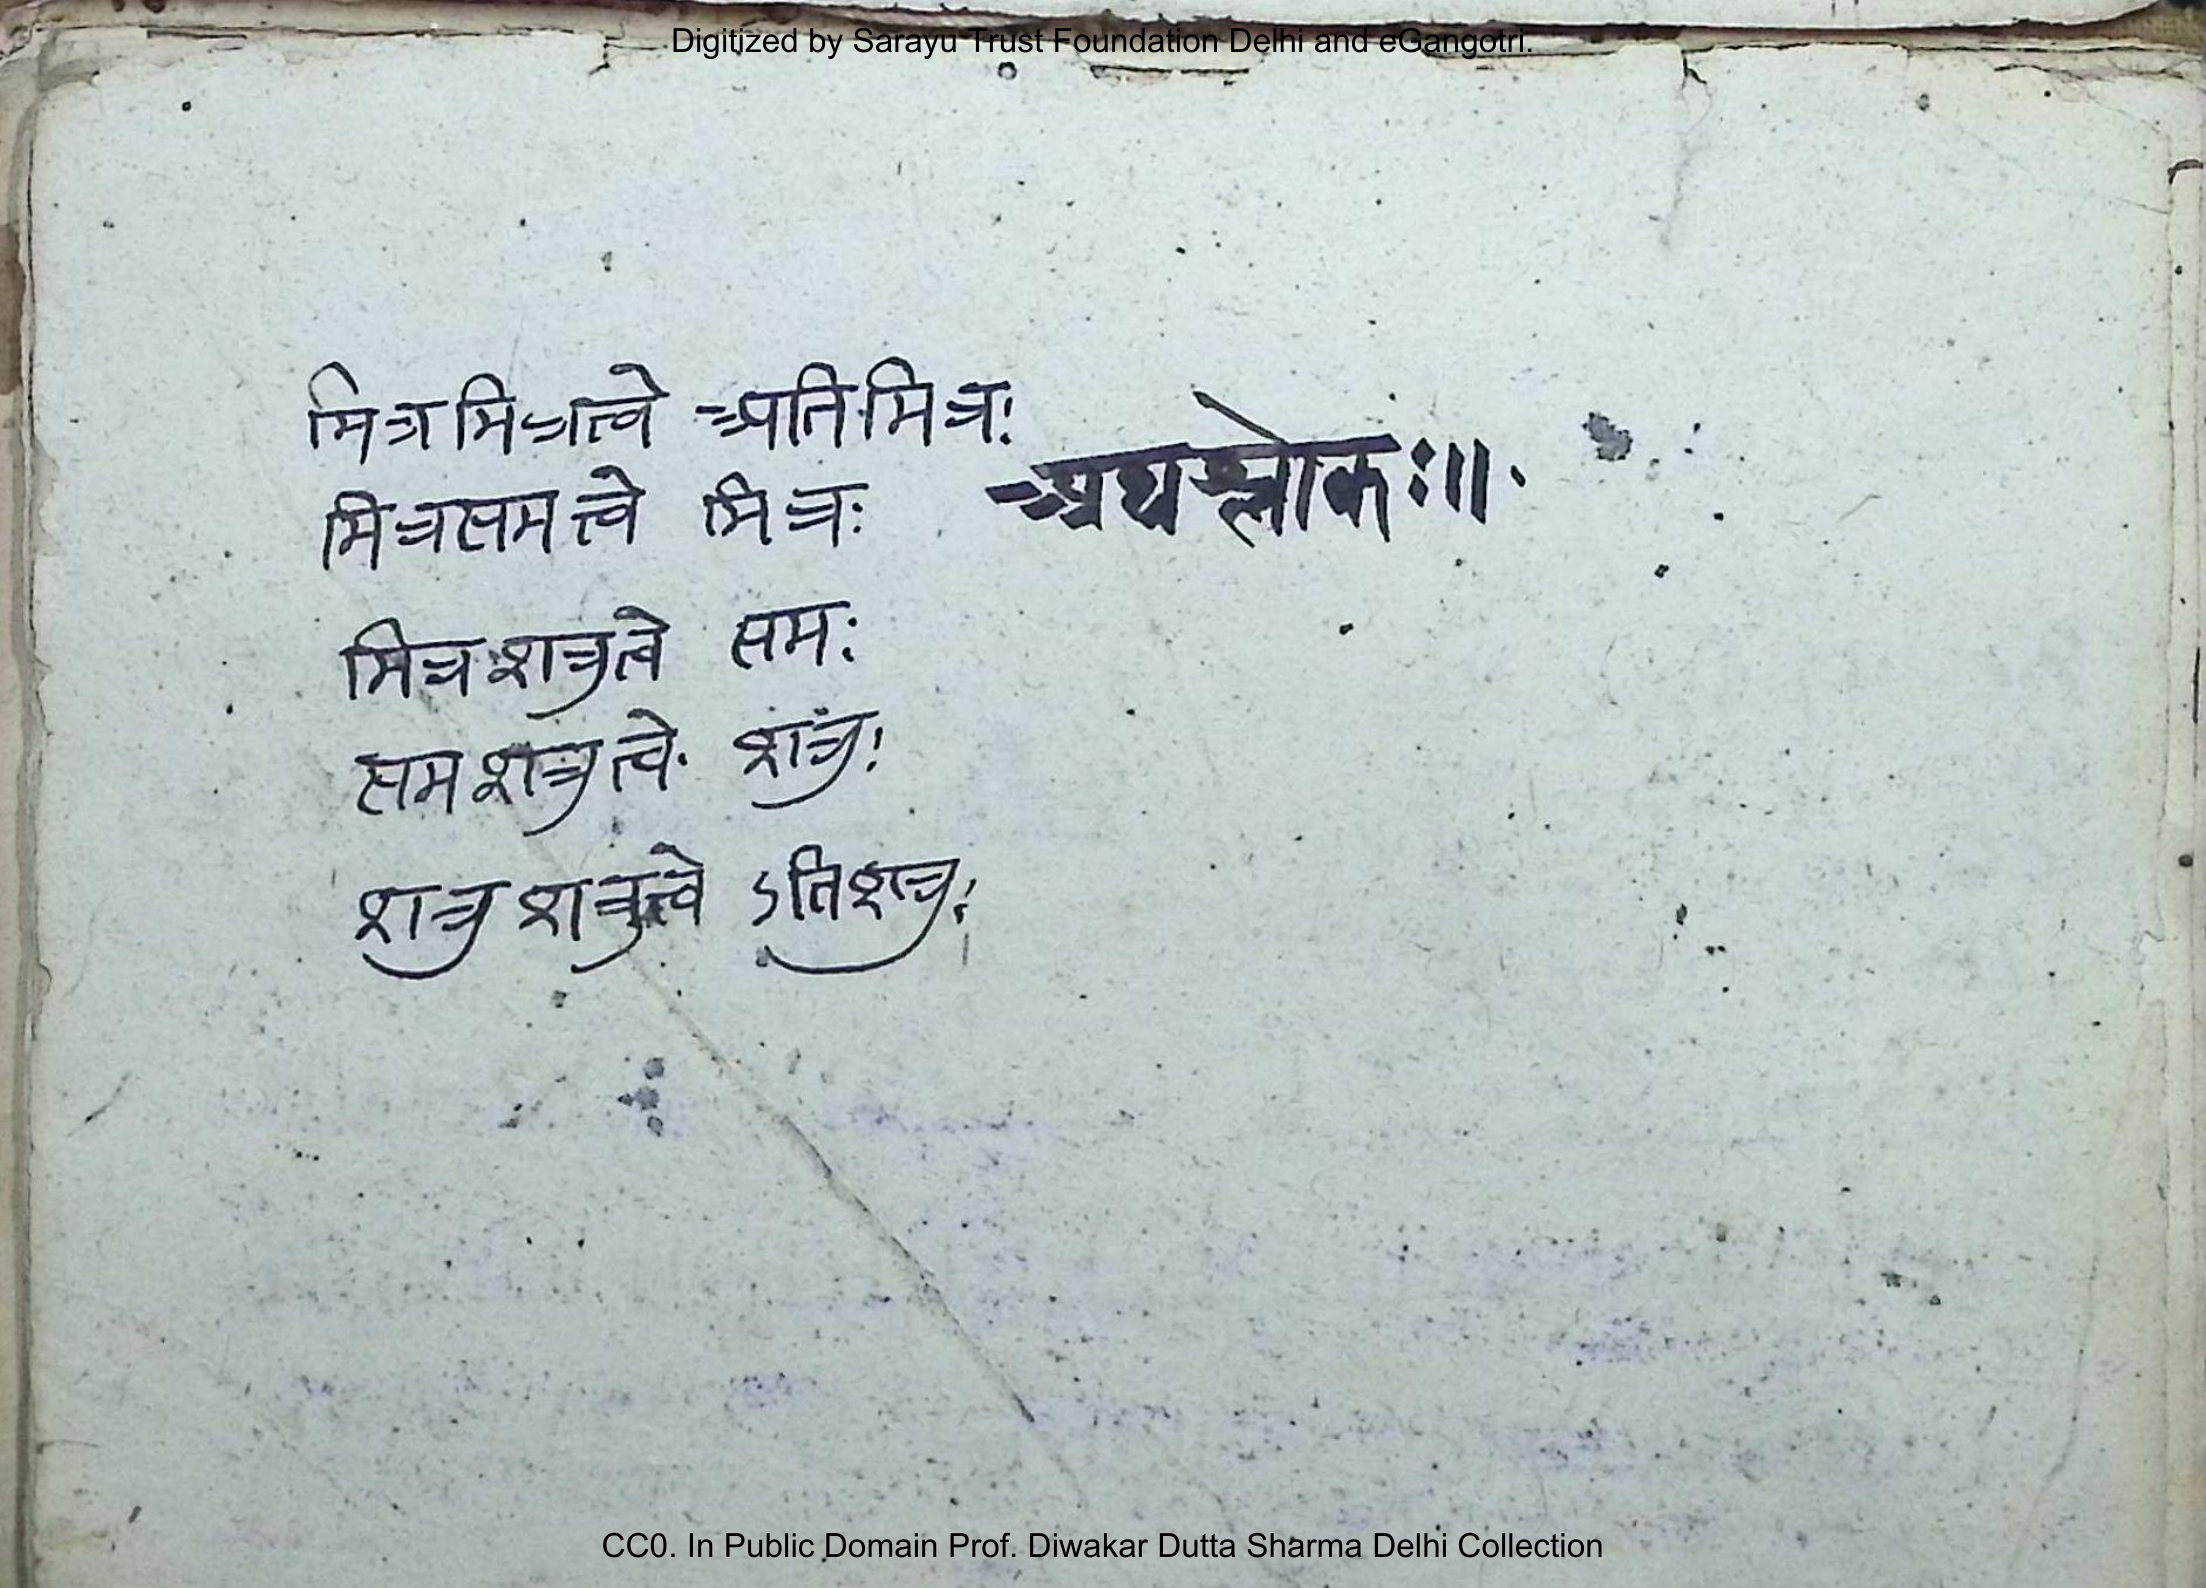 Digitized by Sarayu Trust Foundation Delhi and eGangotri.
मित्रमित्रत्वे अतिमित्रः
मित्रसमत्वे मित्रः
अथश्लोकः॥
मित्रशत्रुत्वे समः
समशत्रुत्वे शत्रुः
शत्रुशत्रुत्वे ऽतिशत्रुः
CC0. In Public Domain Prof. Diwakar Dutta Sharma Delhi Collection